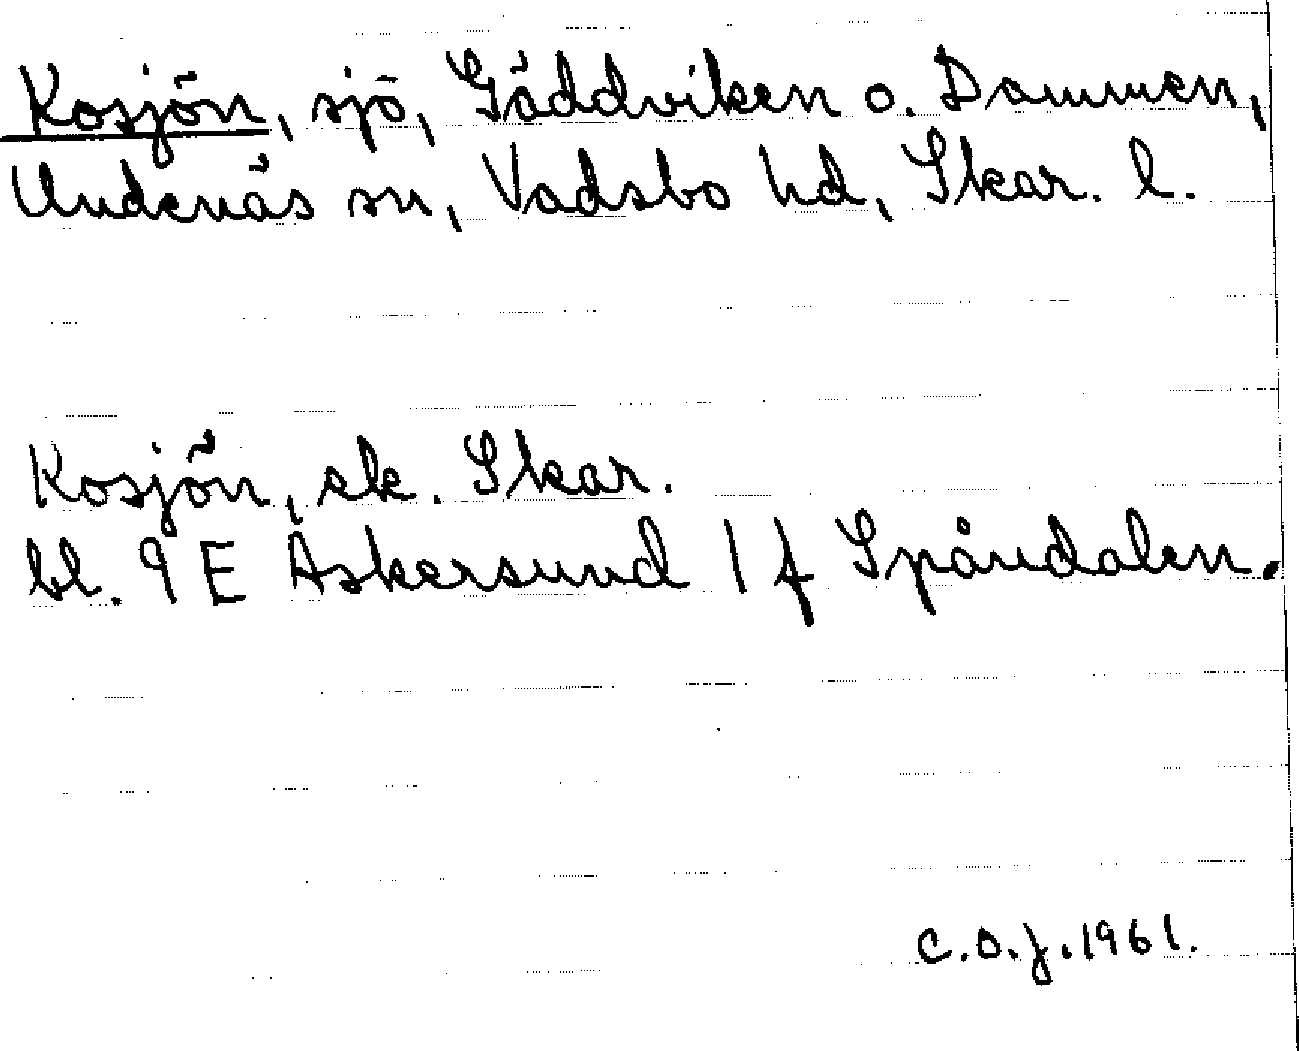 Kosjön, sjö, Gäddviken o. Dammen,
Undenäs sn, Vadsbo hd, Skar. l.
Kosjön, ek. Skar.
bl. 9 E Askersund 1 f Spåndalen.
C.O.J. 1961.